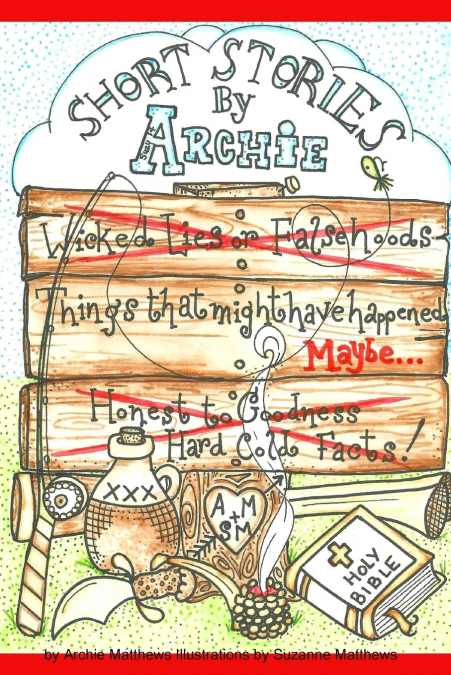 SHORT STORIES
By
ARCHIE
Wicked Lies or Falsehoods
Things that might have happened
Maybe...
Honest to Goodness
Hard Cold Facts!
XXX
AM
+
SM
HOLY
BIBLE
by Archie Matthews Illustrations by Suzanne Matthews